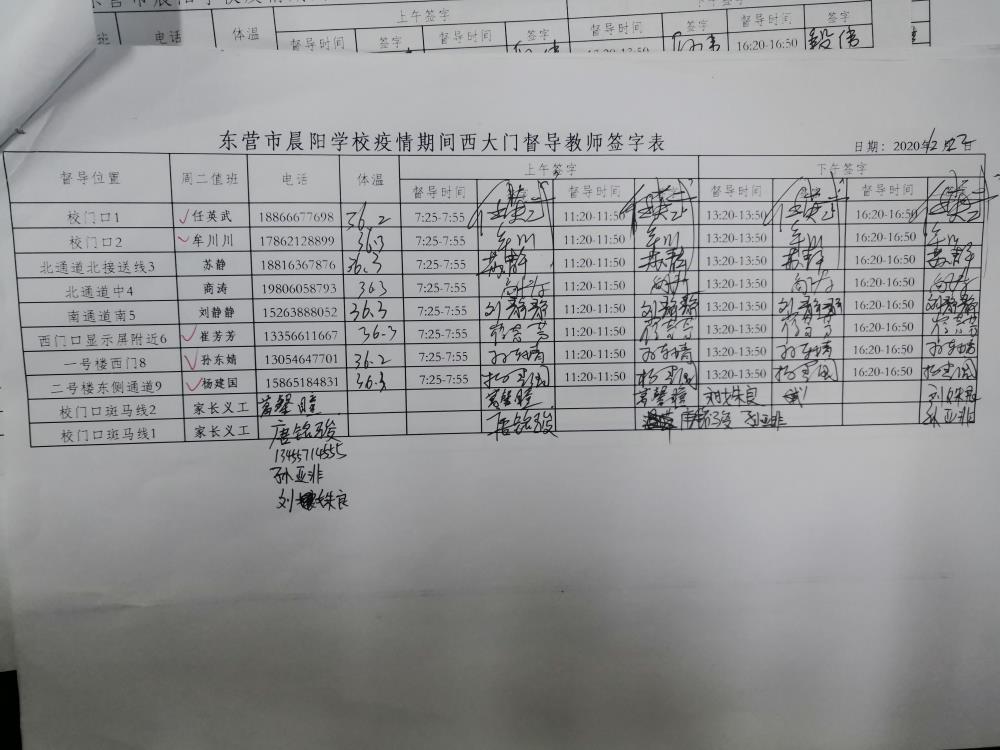 东营市晨阳学校疫情
上午签字
下午签字
班 电话 体温 督导时间 签字 督导时间 签字 督导时间 签字 督导时间 签字
16:20-16:50
东营市晨阳学校疫情期间西大门督导教师签字表
日期：2020年
督导位置 周二值班 电话 体温 上午签字 下午签字
督导时间 督导时间 督导时间 督导时间
校门口1 任英武 18866677698 36.2 7:25-7:55 11:20-11:50 13:20-13:50 16:20-16:50
校门口2 牟川川 17862128899 36.3 7:25-7:55 牟川 11:20-11:50 牟川 13:20-13:50 牟川 16:20-16:50 牟川
北通道北接送线3 苏静 18816367876 36.3 7:25-7:55 苏静 11:20-11:50 苏静 13:20-13:50 苏静 16:20-16:50 苏静
北通道中4 商涛 19806058793 363 7:25-7:55 商涛 11:20-11:50 商涛 13:20-13:50 商涛 16:20-16:50 商涛
南通道南5 刘静静 15263888052 36.3 7:25-7:55 刘静静 11:20-11:50 刘静静 13:20-13:50 刘静静 16:20-16:50 刘静静
西门口显示屏附近6 崔芳芳 13356611667 36.3 7:25-7:55 11:20-11:50 13:20-13:50 16:20-16:50
一号楼西门8 孙东婧 13054647701 36.2 7:25-7:55 孙东婧 11:20-11:50 孙东婧 13:20-13:50 孙东婧 16:20-16:50 孙东婧
二号楼东侧通道9 杨建国 15865184831 36.3 7:25-7:55 杨建国 11:20-11:50 杨建国 13:20-13:50 杨建国 16:20-16:50 杨建国
校门口斑马线2 家长义工
校门口斑马线1 家长义工 唐铭骏 唐铭骏 唐铭骏 孙亚非 孙亚非
13455714555
孙亚非
刘 株良